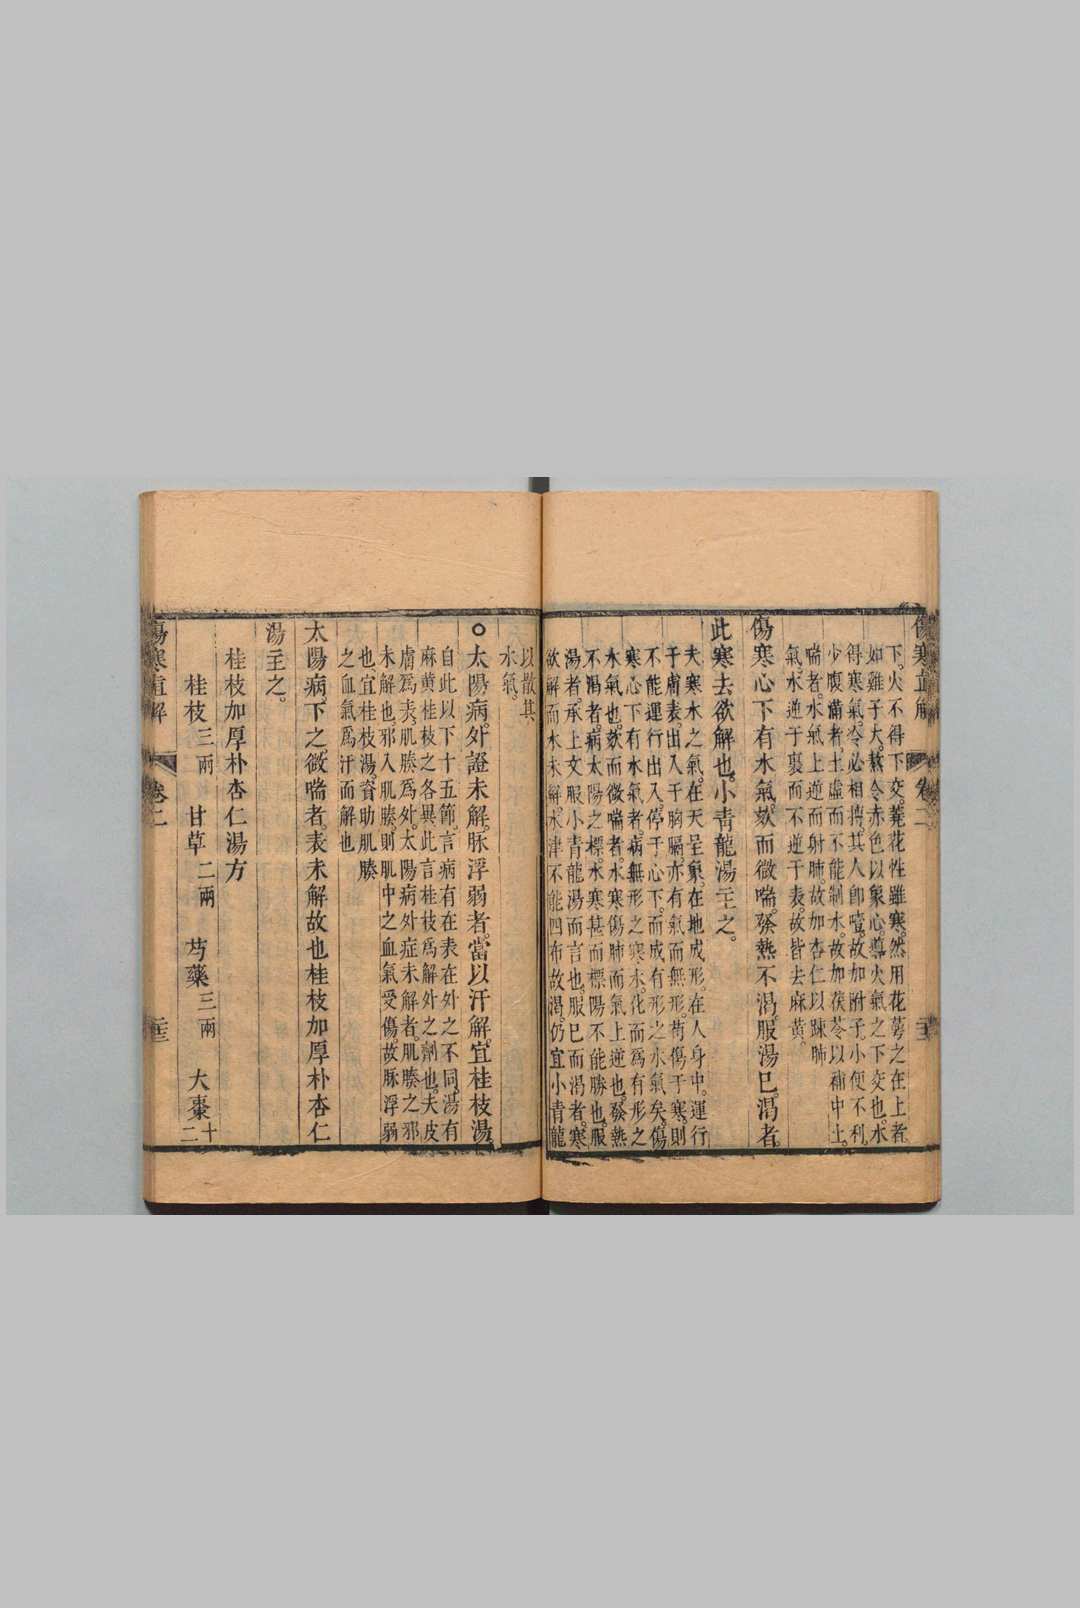 傷寒直解
卷二
下。火不得下交。蕘花性雖寒。然用花蕚之在上者。
如雞子大。熬令赤色以象心。導火氣之下交也。水
得寒氣。冷必相搏。其人卽噎。故加附子。小便不利。
少腹滿者。土虛而不能制水。故加茯苓以補中土。
喘者。水氣上逆而射肺。故加杏仁以疎肺
氣。水逆于裏而不逆于表。故皆去麻黃。
傷寒心下有水氣。欬而微喘。發熱不渴。服湯已。渴者。
此寒去欲解也。小青龍湯主之。
夫寒水之氣。在天呈象。在地成形。在人身中。運行
于膚表。出入于胸膈。亦有氣而無形。苟傷于寒。則
不能運行出入。停于心下。而成有形之水氣矣。傷
寒心下有水氣者。病無形之寒水。化而爲有形之
水氣也。欬而微喘者。水寒傷肺而氣上逆也。發熱
不渴者。病太陽之標。水寒甚而標陽不能勝也。服
湯者。承上文服小青龍湯而言也。服已而渴者。寒
欲解而水未解。水津不能四布故渴。仍宜小青龍
以散其
水氣。
○太陽病。外證未解。脉浮弱者。當以汗解。宜桂枝湯。
自此以下十五節。言病有在表在外之不同。湯有
麻黃桂枝之各異。此言桂枝爲解外之劑也。夫皮
膚爲表。肌腠爲外。太陽病外症未解者。肌腠之邪
未解也。邪入肌腠。則肌中之血氣受傷。故脉浮弱
也。宜桂枝湯。資助肌腠
之血氣爲汗而解也
太陽病。下之。微喘者。表未解故也桂枝加厚朴杏仁
湯主之。
桂枝加厚朴杏仁湯方
桂枝三兩 甘草二兩 芍藥三兩 大棗十二
傷寒直解
卷二